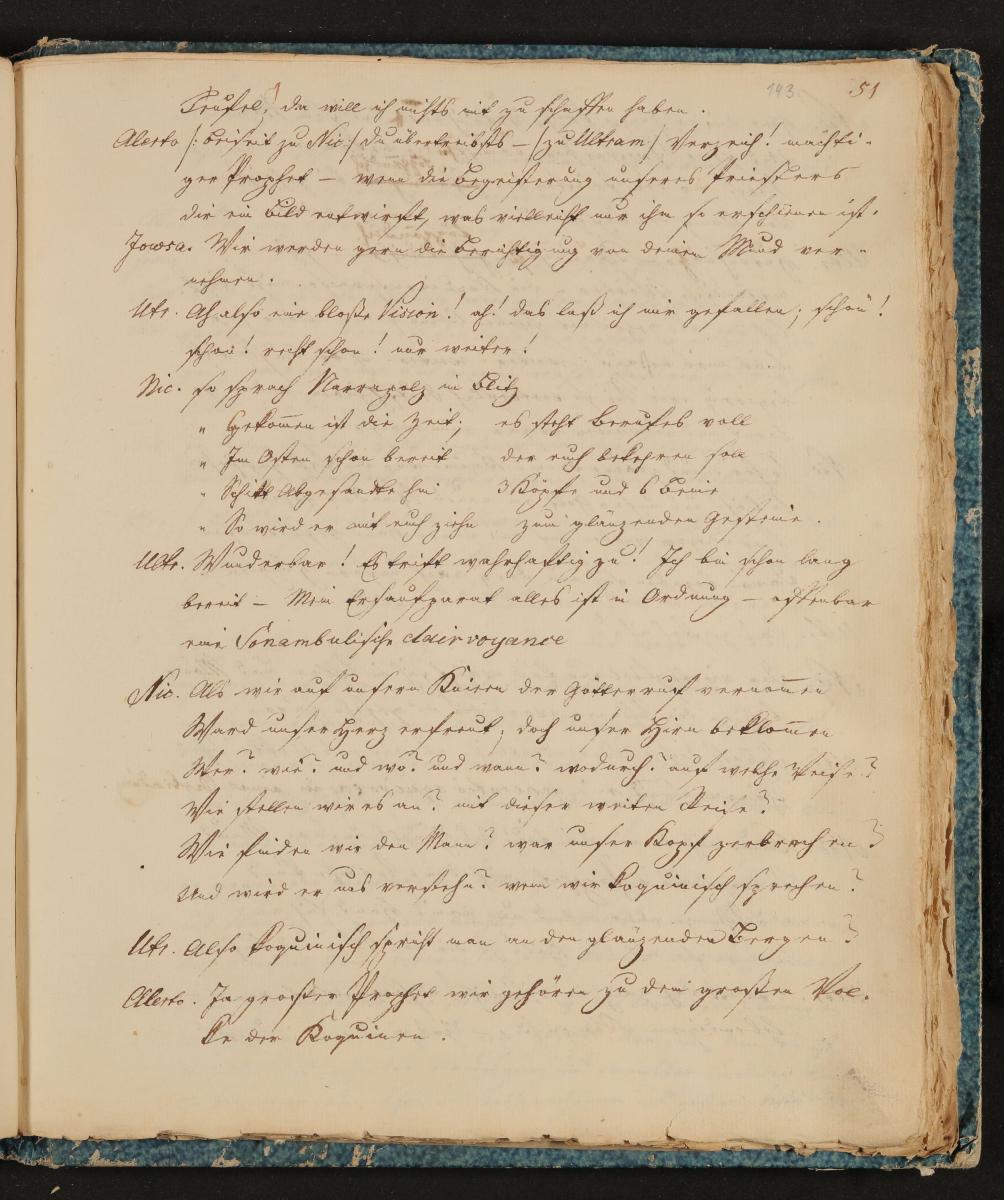 143 51
Teufel, da will ich nichts mit zu schaffen haben.
Alerto |: beiseit zu Nic :| du übertreibsts – | zu Ultram | Verzeih! mächti-
ger Prophet – wenn die Begeisterung unseres Priesters
dir ein Bild entwirft, was vielleicht nur ihm so erschienen ist.
Jowsa. Wir werden gern die Berichtigung von deinem Mund ver-
nehmen.
Utr. Ah also eine bloße Vision! ah! das laß ich mir gefallen; schön!
schön! recht schön! nur weiter!
Nic. so sprach Narrapolz im Blitz
" Gekom̄en ist die Zeit; es steht Berufes voll
" Im Osten schon bereit der euch bekehren soll
" Schikt Abgesandte hin 3 Köpfe und 6 Beine
" So wird er mit euch ziehn zum glänzenden Gesteine.
Ultr. Wunderbar! Es trift wahrhaftig zu! Ich bin schon lang
bereit – Mein alles ist in Ordnung – offenbar
eine Sonambulische clairvoyance
Nic. Als wir auf unsern Knieen der Götterruf vernom̄en
Ward unser Herz erfreut; doch unser Hirn beklom̄en
Wer? wie? und wo? und wann? wodurch? auf welche Weise?
Wie stellen wir es an? mit dieser weiten Reise?
Wie finden wir den Mann? war unser Kopf zerbrechen?
Und wird er uns verstehn? wenn wir koquinisch sprechen?
Utr. Also koquinisch spricht man an den glänzenden Bergen?
Alerto. Ja großer Prophet wir gehören zu dem großen Vol-
ke der Koquinen.